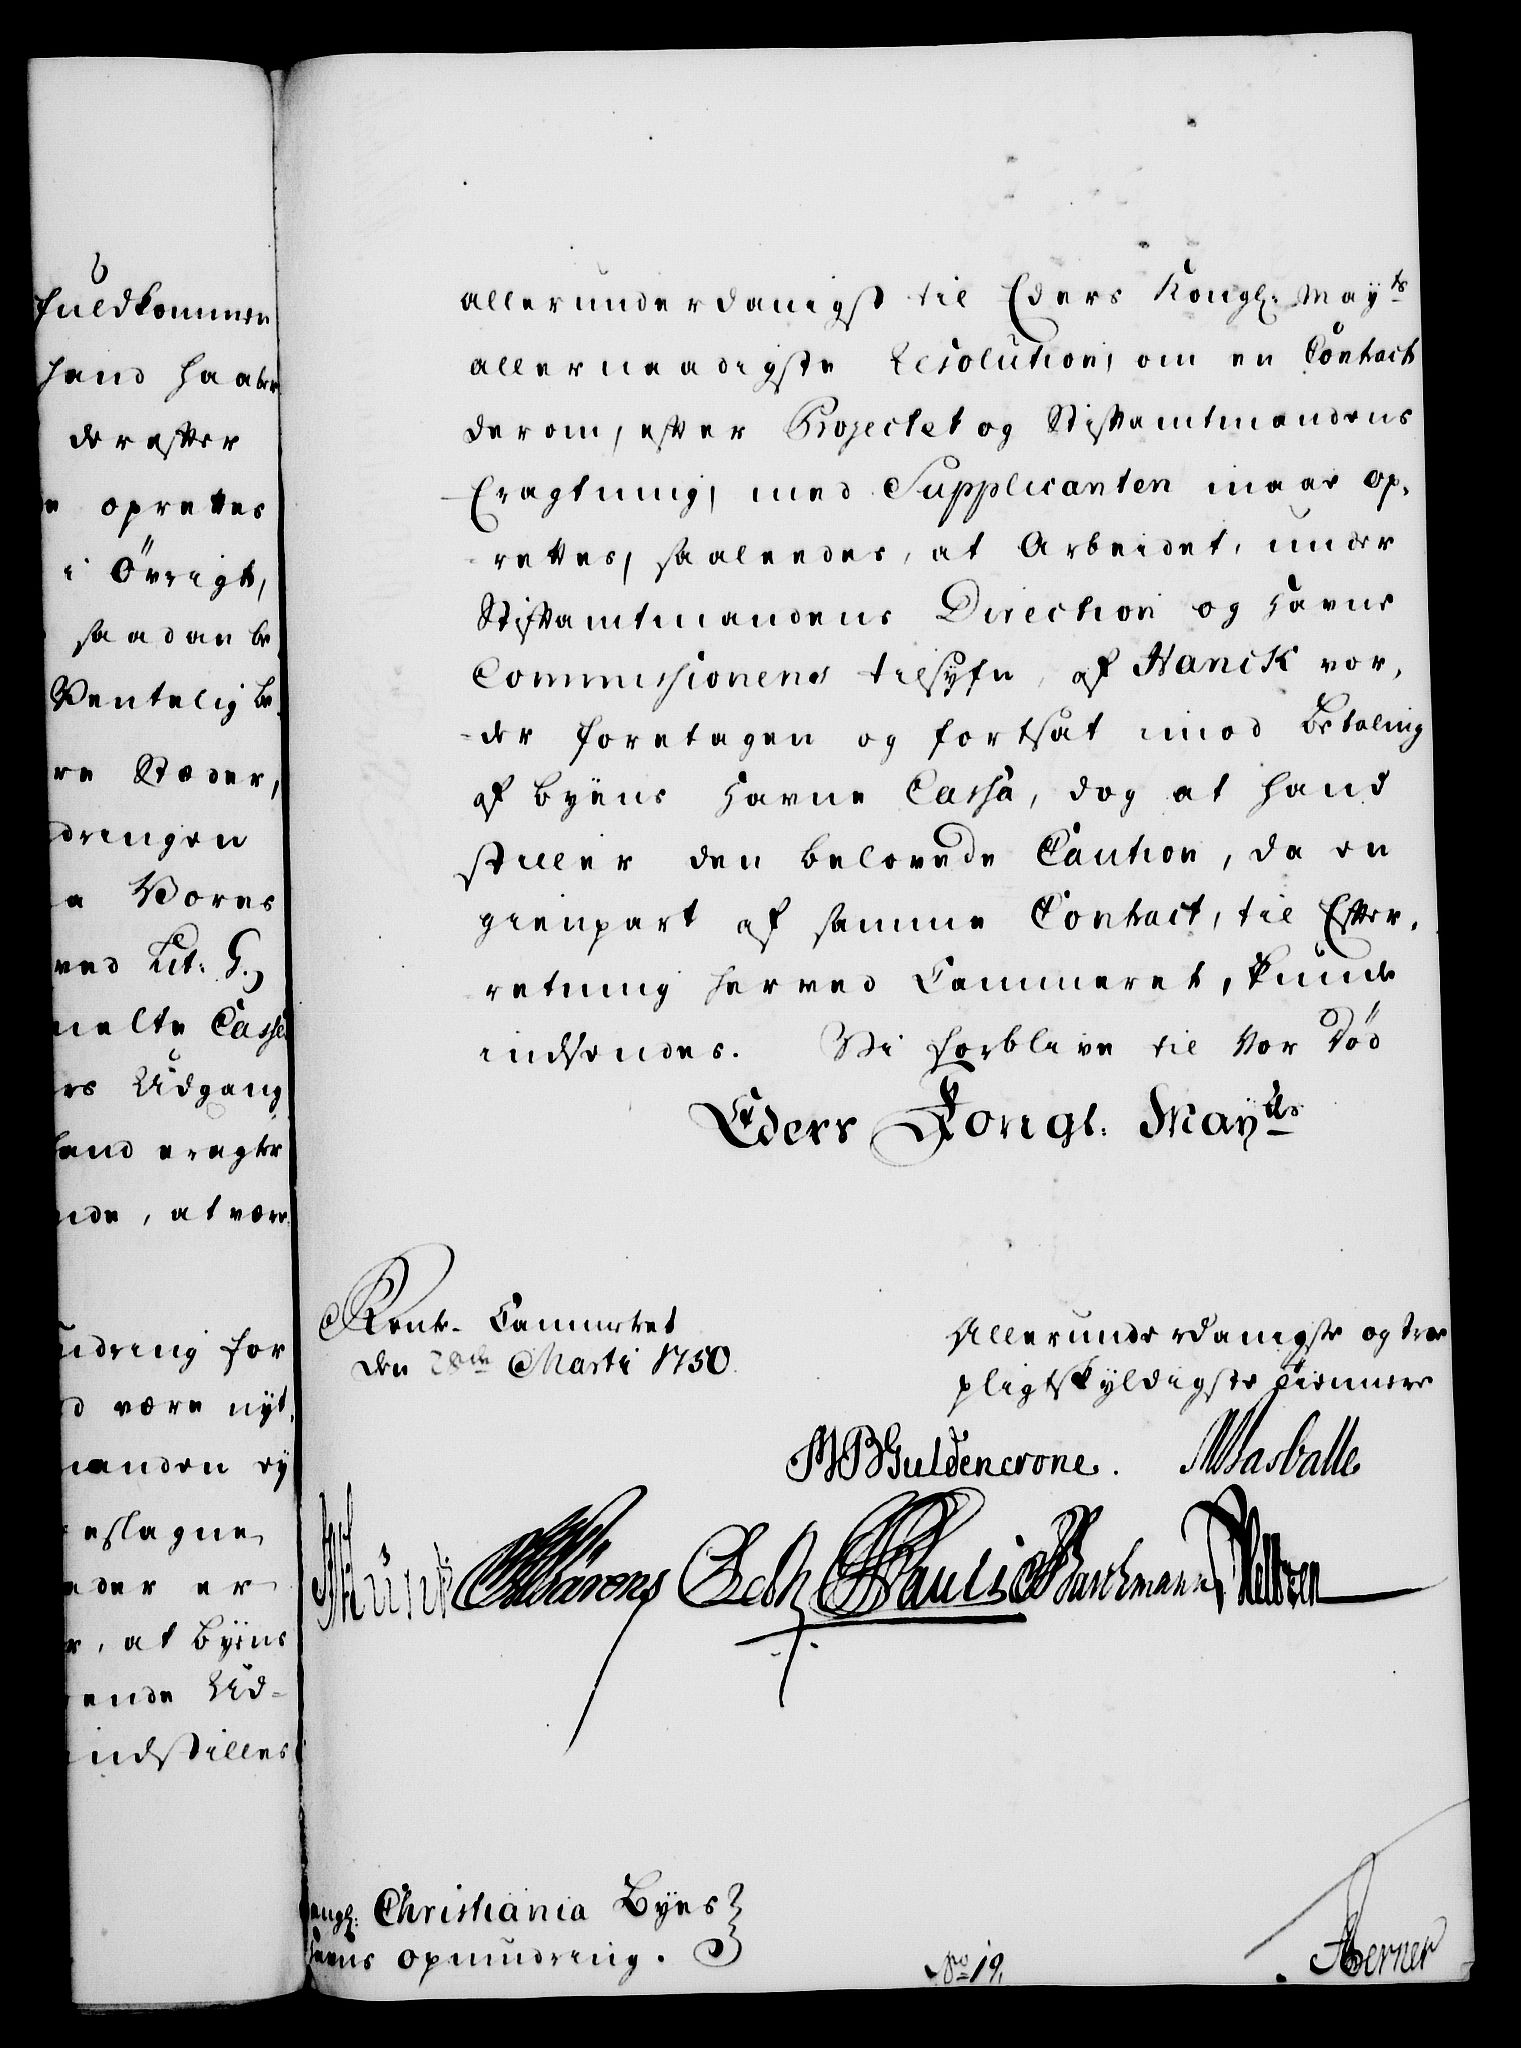 fuldkommen
haand haaber
derefter
oprettes
i Övrigt,
saadan be„
Ventelig be„
re Stæder,
dringen
a Vores
ved Lit: G.,
melte Casse
rs Udgang
hand eragter
nde, at være
udring for
d være nyt,
manden ey
eslagne
eder er
r, at Byens
ende Ud-
indstilles
allerunderdanigst til Eders Kongl: Mayts
allernaadigste Resolution, om en Contract
derom, efter Projectet og Stiftamtmandens
Eragtning, med Supplicanten maae op„
rettes, saaleedes, at Arbeidet, under
Stiftamtmandens Direction og Havne
Commissionens tilsyfn, af Hanck vor„
der foretagen og fortsat imod Betaling
af byens Havne Cassa, dog at hand
stiller den belovede Caution, da en
gienpart af samme Contract, til Efter„
retning herved Cammeret, kunde
indsendes. Vi forblive til Vor Död
Eders Kongl. Mayts
Rente Cammeret
den 28de Marti 1750.
Allerunderdanigste og troe
pligtskyldigste tiennere
MBGuldencrone. Wasballe
Pauli Barchmann
angl: Christiania Byes
havns opmudring.
No 19.
Berner